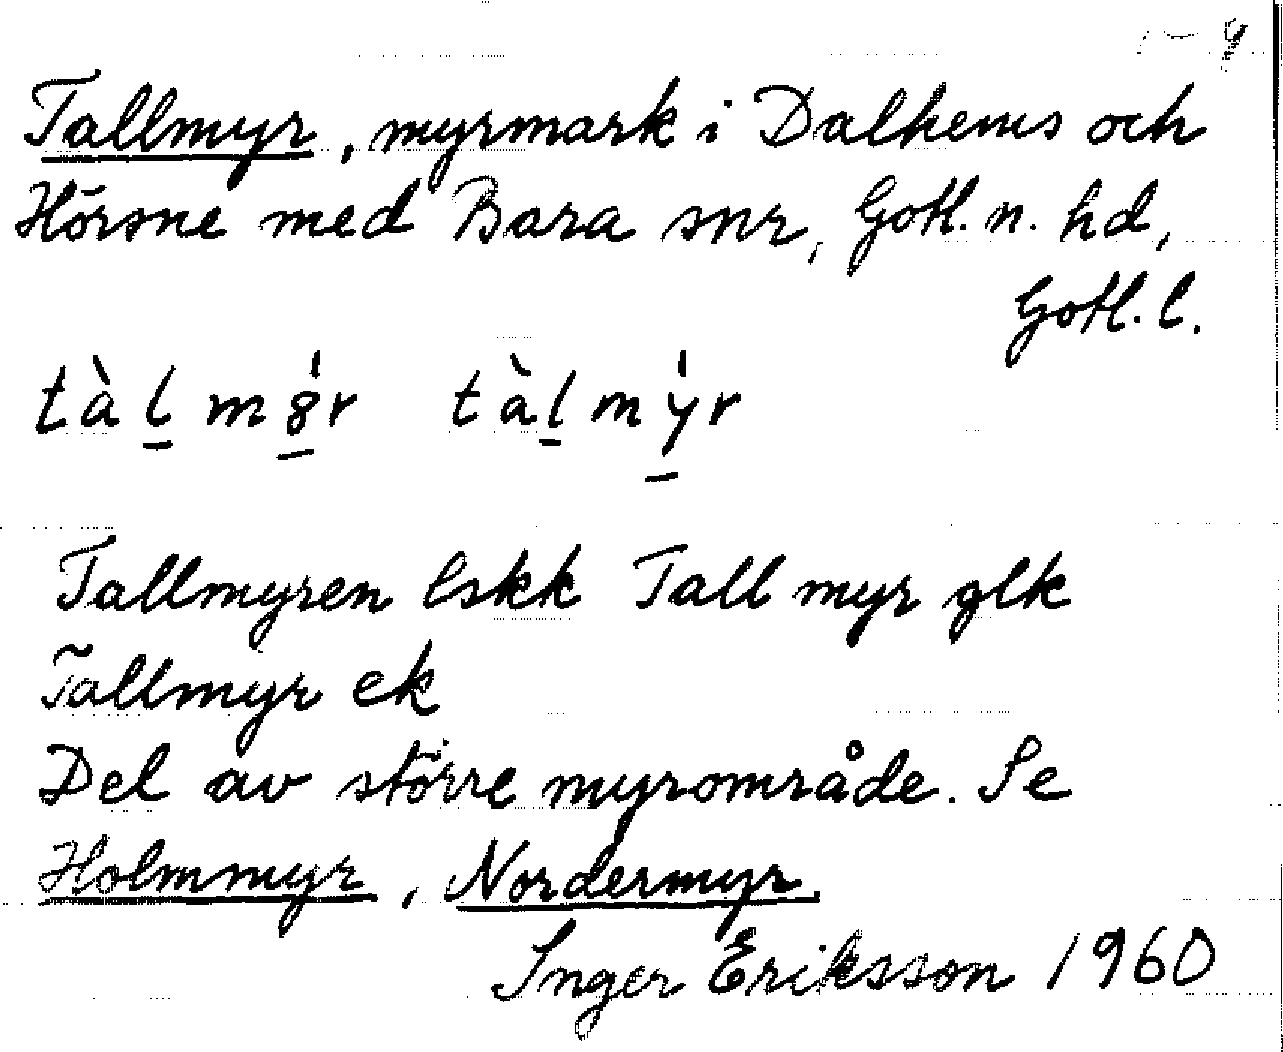 Tallmyr, myrmark i Dalhems och
Hörsne med Bara snr, Gotl. n. hd,
Gotl. l.
tàl̠ m8̠́r tàl̠ mý̠r
Tallmyren lskk Tall myr glk
Tallmyr ek
Del av större myrområde. Se
Holmmyr, Nordermyr.
Inger Eriksson 1960